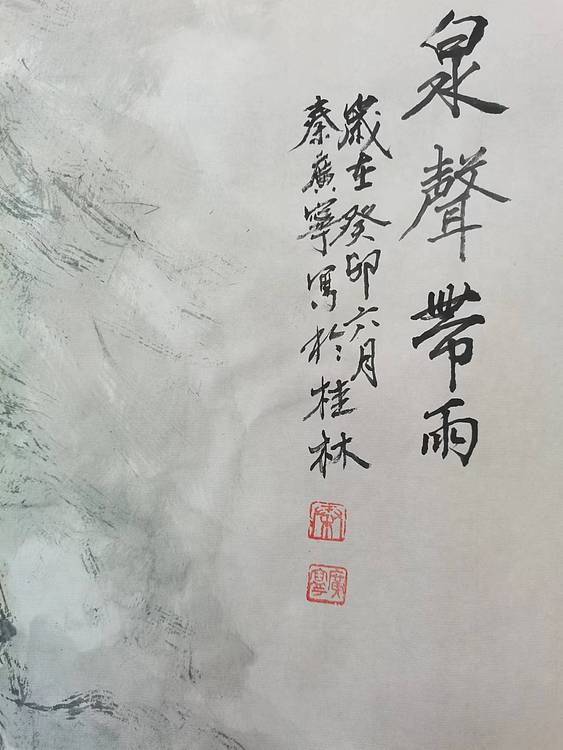 泉聲帶雨
歲在癸卯六月
秦廣寧寫於桂林
秦
廣寧